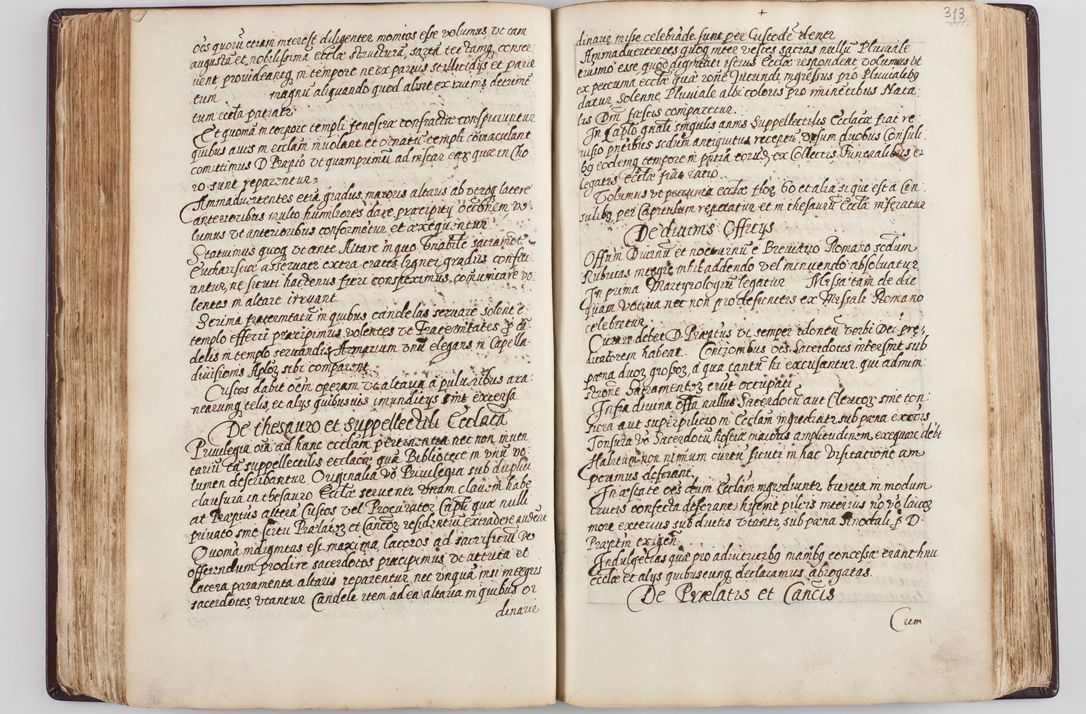 oēs quorū etiam interest diligenter monitos esse volumus, ut tam
augustā et nobilissimā ecclīæ structurā, sartā tectamq conser
uent prouideantq in tempore ne ex paruis stillicidijs et paruo
tum magnū aliquando quod absit ex ruinis detrime
tum ecclā patiatr
Et quoniā in corpore templi fenestræ confractæ conspiciuntur
quibus auis in ecclam inuolant et ornatū templi
comittimus D Præpto ut quamprimū eas quæ in Cho
ro sunt reparentur
Ammaduertentes etiā gradus maioris altaris ab utroq latere
anterioribus multo humiliores dare præcipitij occōnem, vo
lumus ut anterioribus conformetur et æxequentur
Statuimus quoq ut ante Altare in quo Vnābile sacramēt
Eucharistiæ asseruatr extra crates lignei gradus confici
antur, ne sicuti hactenus fieri conspeximus, comunicare vo
lentes in altare irruant.
Scrinia fraternitatū in quibus candelas seruare solent e
templo efferri præcipimus, volentes ut Fraternitates
delis in templo seruandis Armarium vnū elegans in Capella
diuisionis Aplor sibi comparent
Custos dabit oēm operam ut altaria a puluribus ara
nearumq telis, et alijs quibusuis imunditijs sint extersa
De thesauro et suppellectili Ecclīaca
Priuilegia oīa ad hanc ecclam pertinentia nec non inuen
tariū tā suppellectilis ecclacæ quā Bibliotecæ in vnū vo
lumen describantur Originalia vō Priuilegia sub duplici
clausura in thesauro Ecclæ seruentr Vnam clauem habe
at Præptus alterā Custos vel Procurator Capli quæ nulli
priuato sine scitu Prælator et Cancōr residentiū extradere audeat
Quoniā indignitas est maxima laceros ad sacrificiū Dō
offerendum prodire sacerdotes præcipimus ut attrita et
lacera paramenta altaris reparentur, nec vnquā nisi integris
sacerdotes, vtantur Candelæ item ad ea altaria in quibus or
dinariæ
313
dinariæ missæ celebrādæ sunt per Custodē dentr
Ammaduertentes quoq inter vestes sacras nullū Pluuiale
eiusmō esse, quod dignitati istius Ecclæ respondeat volumus ut
ex pecunia ecclæ quā rōne Jucundi ingressus pro Pluuialibq
datur, Solenne Pluuiale albi coloris pro intrātibus Nata
lis Dnī festis comparetur.
In Caplo gnāli singulis annis Suppellectilis Ecclacæ fiat re
uisio pntibus scdum antiquitus receptū vsum duobus Consuli
bq eodemq tempore in pntia eorūd, ex Collectis Funeralibus et
legatis Ecclæ fiat ratio.
Volumus ut pecunia ecclæ flor 60 et alia si quæ est a Con
sulibq, per Capitulum repetatur et in thesaurū Ecclæ inferatur
De diuinis Officijs
Offm Diurnū et nocturnū e Breuiario Romano scdum
Rubricas integre nihil addendo vel minuendo absoluatur
In prima Martyrologiū legatur Missæ tam de die
quam Votiuæ nec non pro defunctis ex Messale Romano
celebretur.
Curare debet D. Præptus vt semper idoneū verbi Dei præ
dicatorem habeat. Contionibus oēs Sacerdotes intersint sub
pæna duor grossor, a qua tantū hi excusantur qui admini
strone Sacramentor erūt occupati
Infra diuina offa nullus Sacerdotū aut Clericor sine ton
sura aut superpilicio in Ecclam ingrediatr sub pæna exrōis
Tonsura vō Sacerdotū hostiæ maioris amplitudinem exequare debt
Habitum non nimium curtū sicuti in hac Visitatione am
peximus deferant.
In æstate oēs dum Ecclam ingrediuntr bireta in modum
Crucis confecta deferant, hyeme pileis interius nō vō laicor
more exterius subductis vtantr, sub pæna Sinodali p D.
Præptm exigen
Indulgentias quæ pro adiutricibq manibq concessæ erant huic
ecclæ et alijs quibuscunq declaramus abrogatas.
De Prælatis et Cancīs
Cum